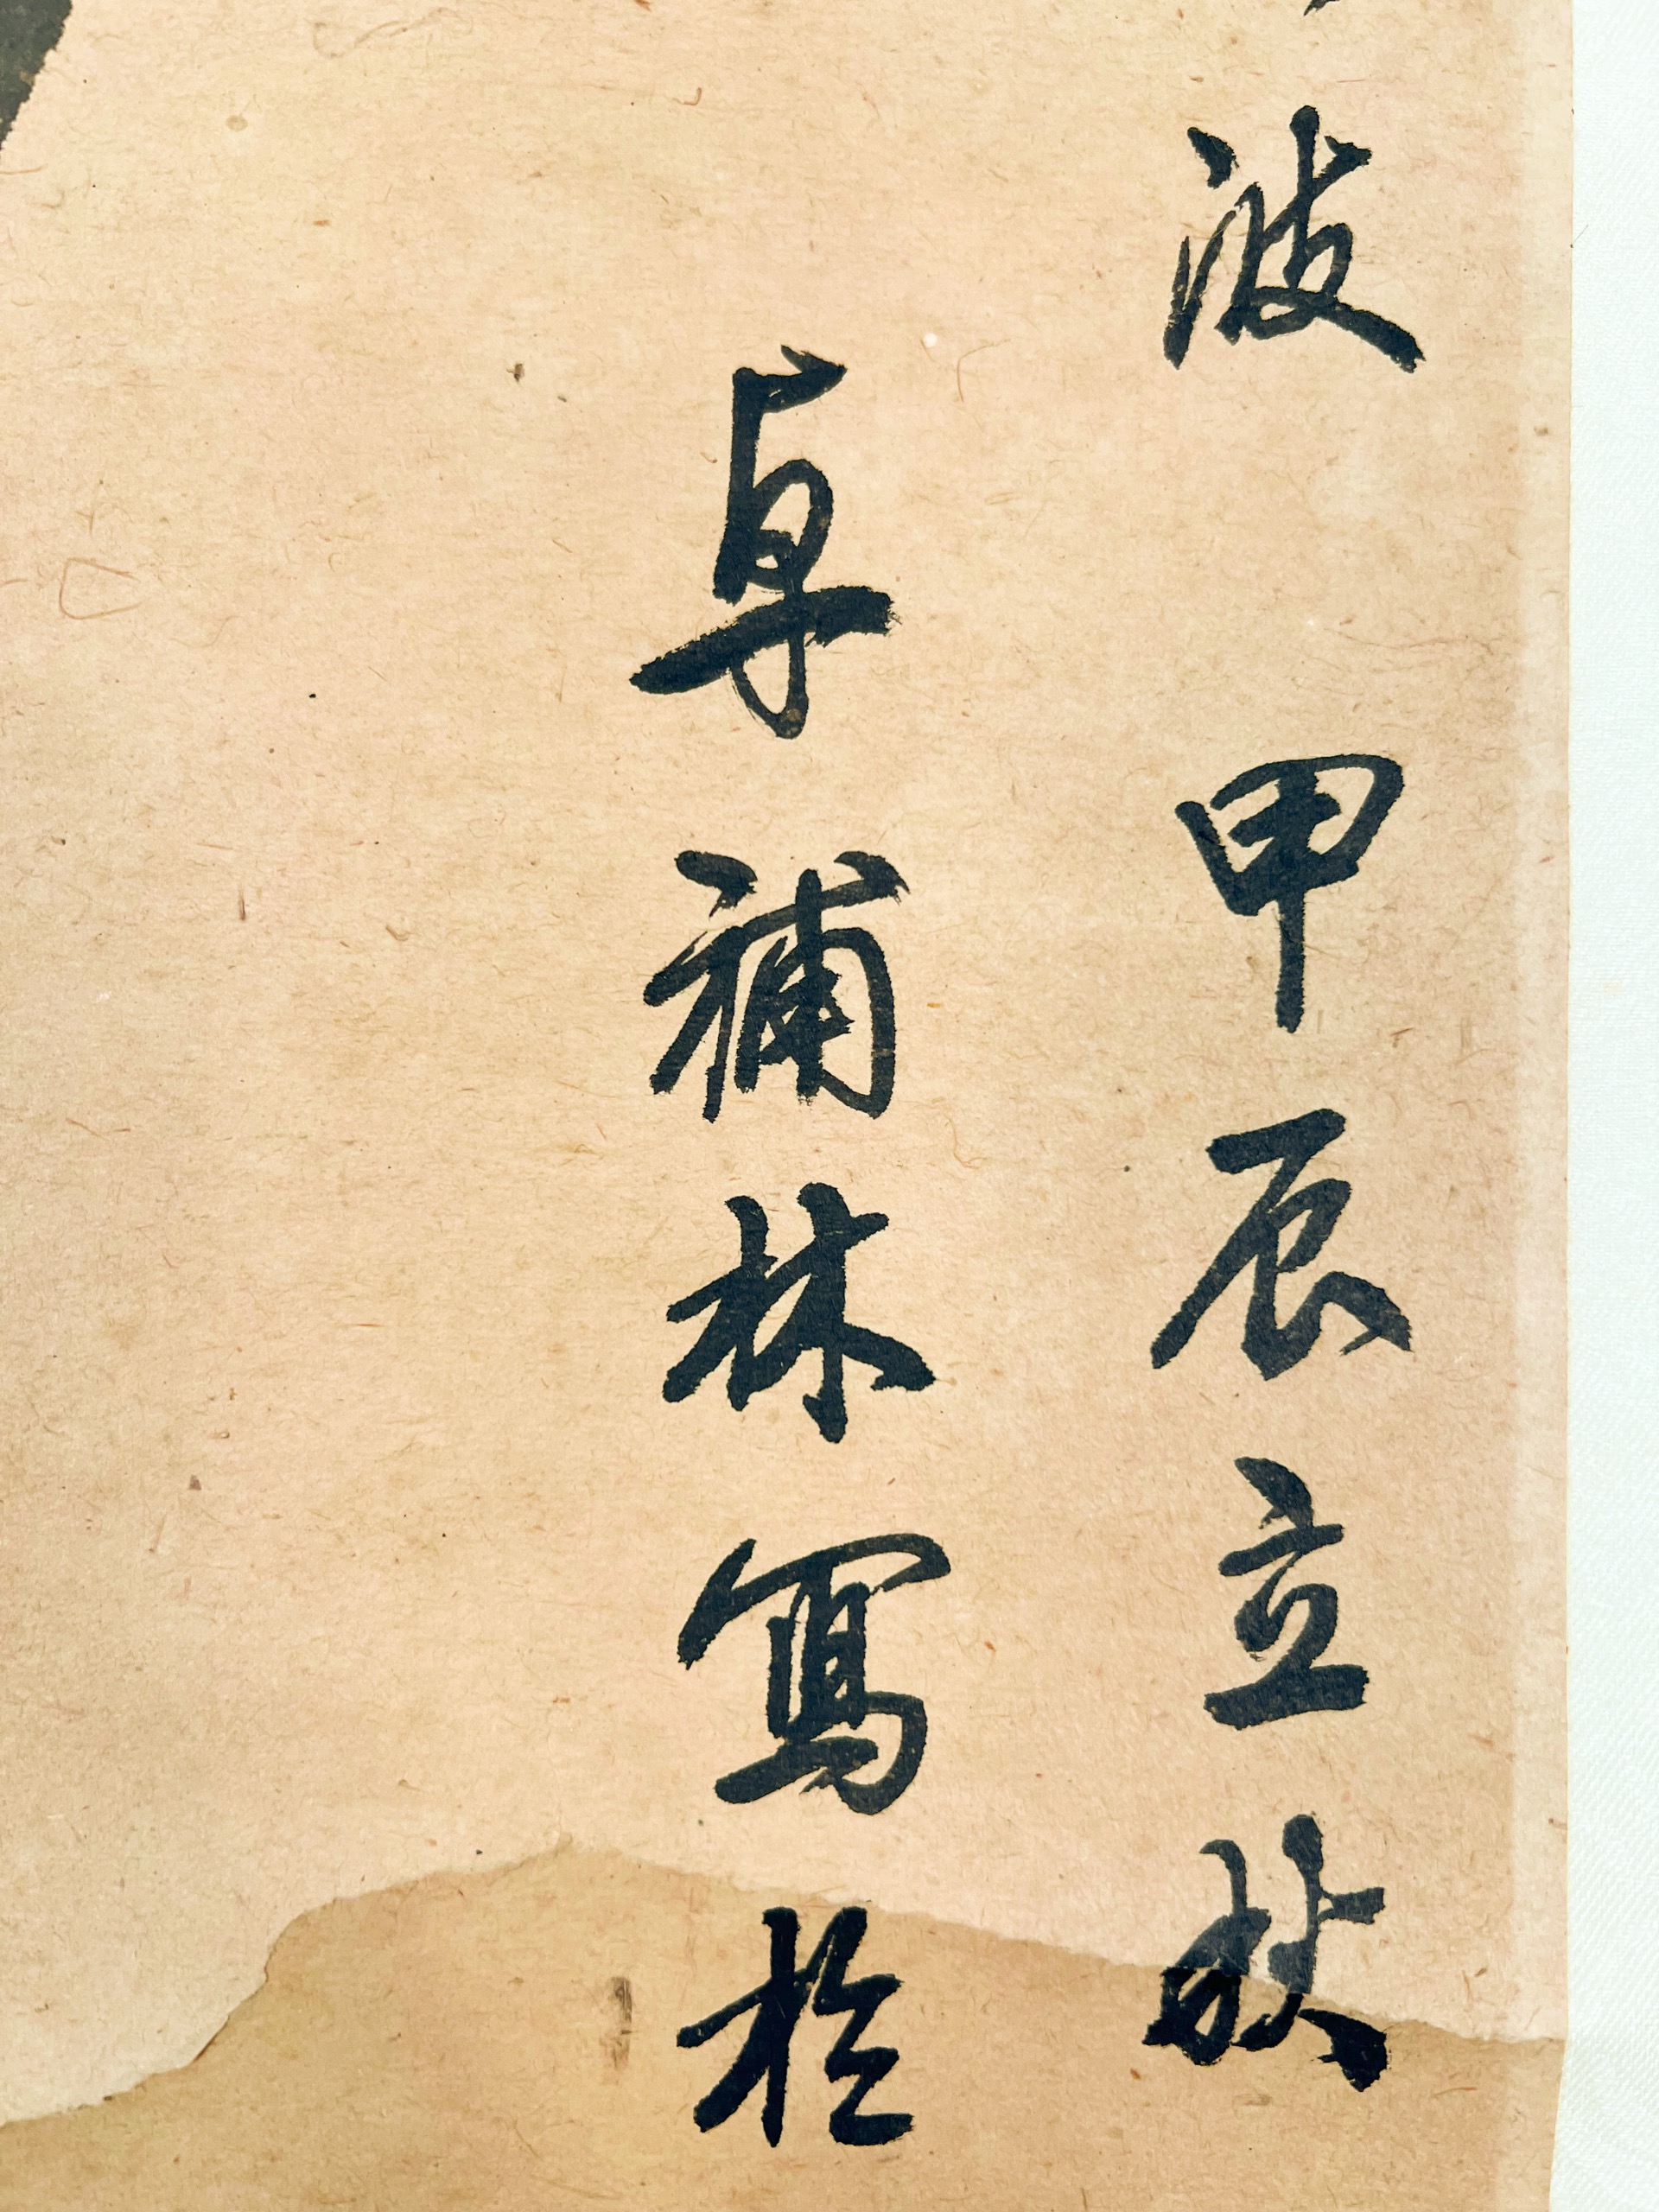 波 甲辰立秋
卓補林寫於